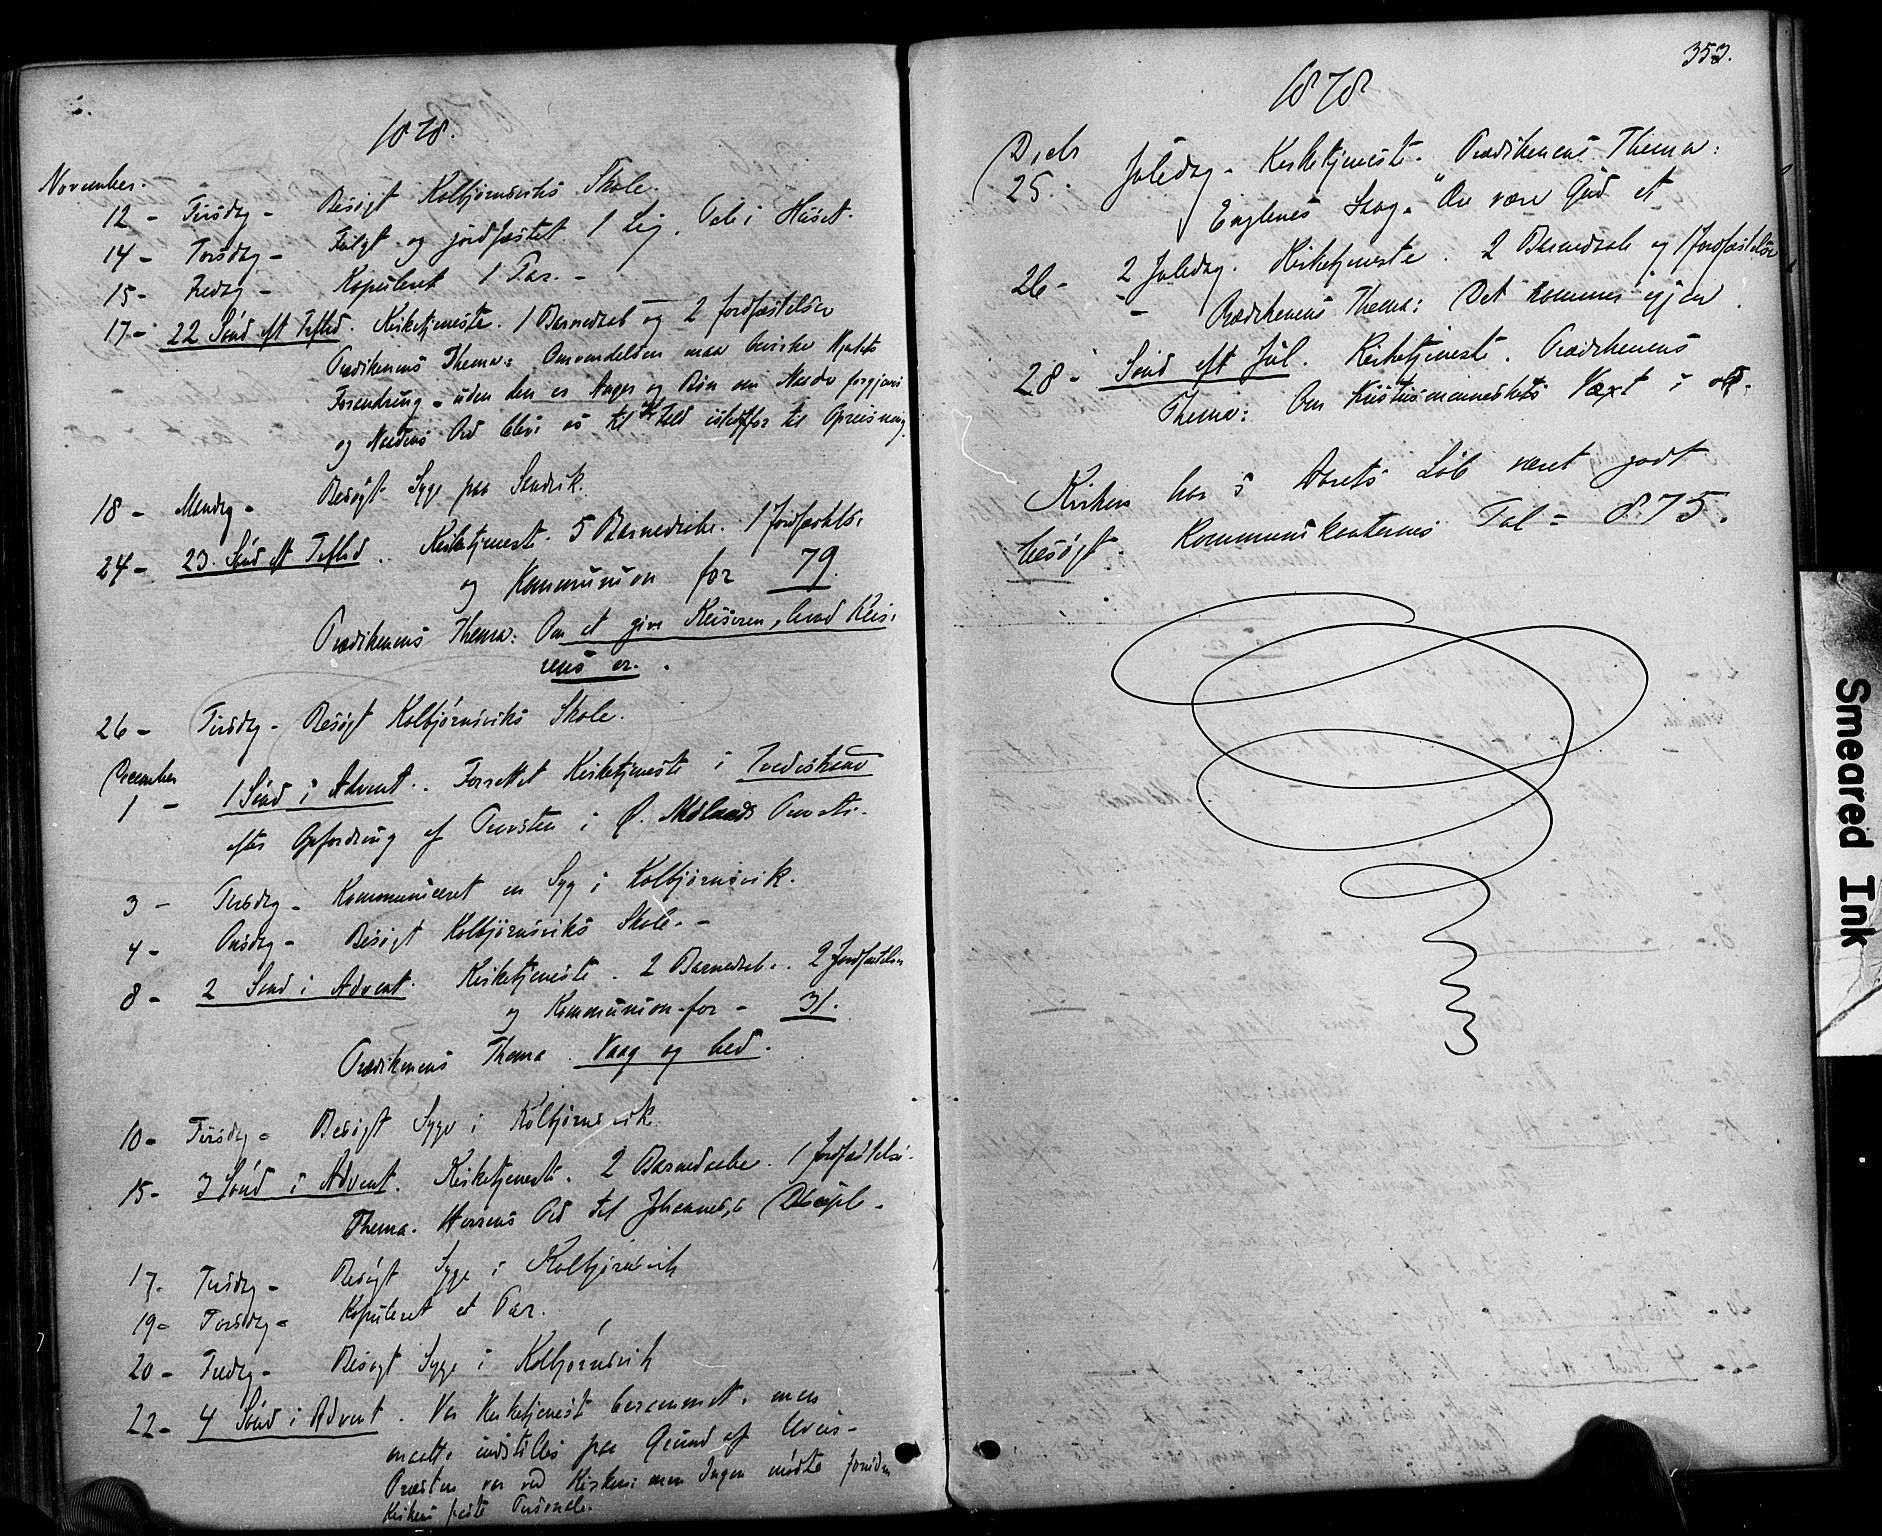 1878.
November.
12 - Tirsdag - Besøgt Kolbjørnsviks Skole.
14 - Torsdag - Fulgt og jordfæstet 1 Lig. i Huset.
15 - Fredag - Kopuleret 1 Par. -
17 - 22 Sønd eft Trefted. Kirketjeneste. 1 Barnedaab og 2 Jordfæstelser
Prædikenens Thema: Omvendelsen maa bevirke Hjertets
Forandring - uden den er Anger og Bøn om Naade forgjæves
og Naadens Ord blive os til Fald istedetfor til Opreisning.
18 - Mandag - Besøgt Syge paa Sandvik.
24 - 23. Sønd eft Trefted. Kirketjeneste. 5 Barnedaabe. 1 Jordfæstelse
og Kommunion for 79.
Prædikenens Thema: Om at give Keiseren, hvad Kei-
rens er.
26 - Tirsdag - Besøgt Kolbjørnsviks Skole.
December
1 - 1 Sønd i Advent. Forrettet Kirketjeneste i Tvedestrand
efter Opfordring af Provsten i Ø. Nedenæs Provsti.
3 - Tirsdag - Kommuniceret en Syg i Kolbjørnsvik.
4 - Onsdag - Besøgt Kolbjørnsviks Skole. -
8 - 2 Sønd i Advent. Kirketjeneste. 2 Barnedaab. 2 Jordfæstelser
og Kommunion for - 31.
Prædikenens Thema. Vaag og bed.
10 - Tirsdag - Besøgt Syge i Kolbjørnsvik.
15 - 3 Sønd i Advent. Kirketjeneste. 2 Barnedaabe. 1 Jordfæstelse.
Thema. Herrens Ord til Johannes's Disciple -
17. Tirsdag - Besøgt Syge i Kolbjørnsvik
19 - Torsdag - Kopuleret et Par.
20 - Fredag - Besøgt Syge i Kolbjørnsvik
22 - 4 Sønd i Advent. Var Kirketjeneste berammet, men
maatte indstilles paa Grund af Uveir -
Præsten var ved Kirken: men Ingen mødte foruden
Kirkens faste Personale.
353.
1878
Dcbr
25. Juledag. Kirketjeneste. Prædikenens Thema:
Englenes Sang. "Ære være Gud et
26 - 2 Juledag. Kirketjeneste. 2 Barnedaab og 1 Jordfæstelse
- Prædikenens Thema: Det kommer igjen.
28 - Sønd eft Jul. Kirketjeneste. Prædikenens
Thema: Om Kristusmenneskets Væxt i os.
Kirken har i Aarets Løb været godt
besøgt. Kommunikanternes Tal = 875.
Smeared Ink